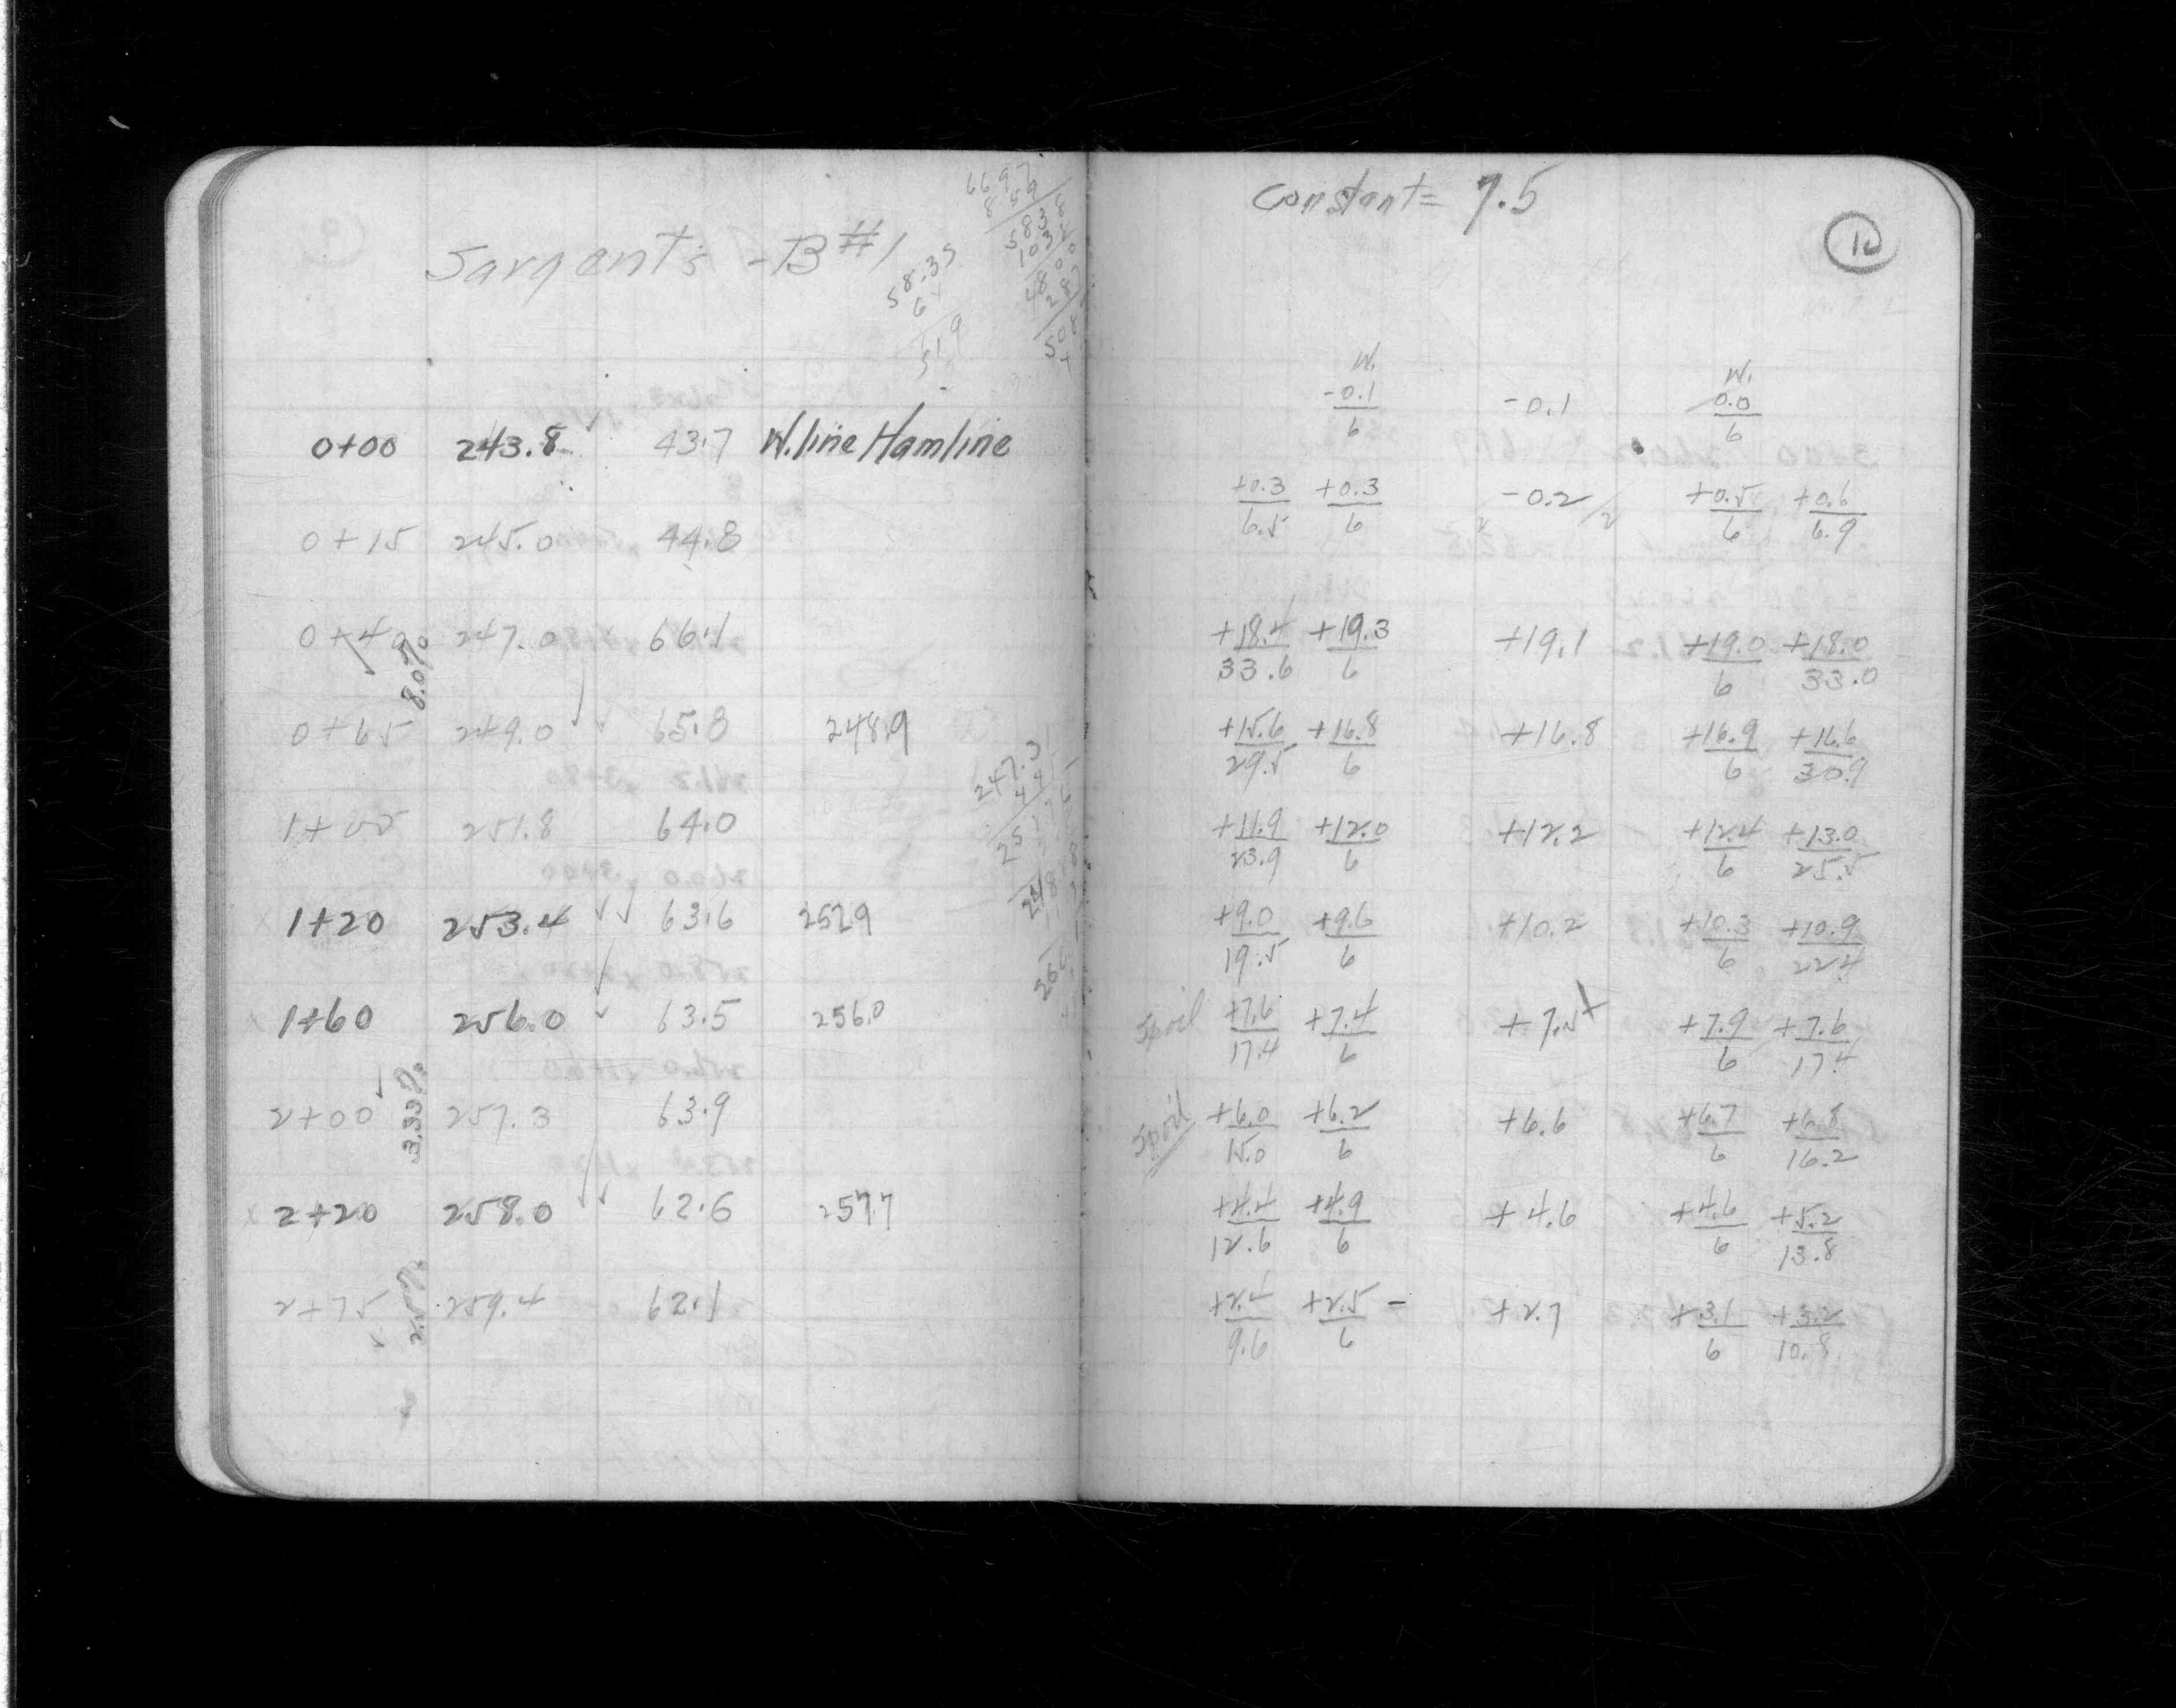 Sargent's - B#1
58.35
6
519
0+00 243.8 43.7 W. line Hamline
0+15 245.0 44.8
0+40 247.0 66.1
8.0%
0+65 249.0 65.8 248.9
247.3
1+00 251.8 64.0
1+20 253.4 63.6 252.9
1+60 256.0 63.5 256.0
3.33%
2+00 257.3 63.9
2+20 258.0 62.6 257.7
2.5%
2+75 259.4 62.1
Constant = 7.5
10
W. W.
-0.1/6 -0.1 0.0/6
+0.3/6.5 +0.3/6 -0.2 +0.5/6 +0.6/6.9
+18.4/33.6 +19.3/6 +19.1 +19.0/6 +18.0/33.0
+15.6/29.5 +16.8/6 +16.8 +16.9/6 +16.6/30.9
+11.9/23.9 +12.0/6 +12.2 +12.4/6 +13.0/25.5
+9.0/19.5 +9.6/6 +10.2 +10.3/6 +10.9/22.4
Spoil +7.6/17.4 +7.4/6 +7.5 +7.9/6 +7.6/17.4
Spoil +6.0/15.0 +6.2/6 +6.6 +6.7/6 +6.8/16.2
+4.4/12.6 +4.9/6 +4.6 +4.6/6 +5.2/13.8
+2.4/9.6 +2.5/6 - +2.7 +3.1/6 +3.2/10.8